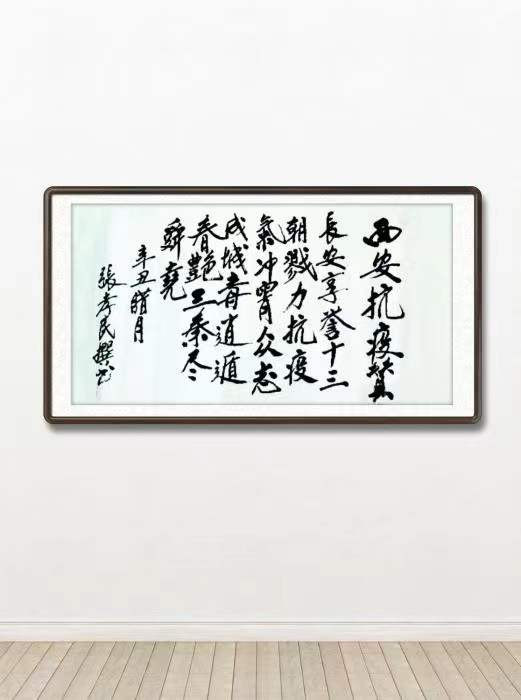 西安抗疫赞
長安享誉十三
朝戮力抗疫
氣冲霄众志
成城毒逍遁
春艶三秦尽
舜堯
辛丑腊月
張孝民撰书